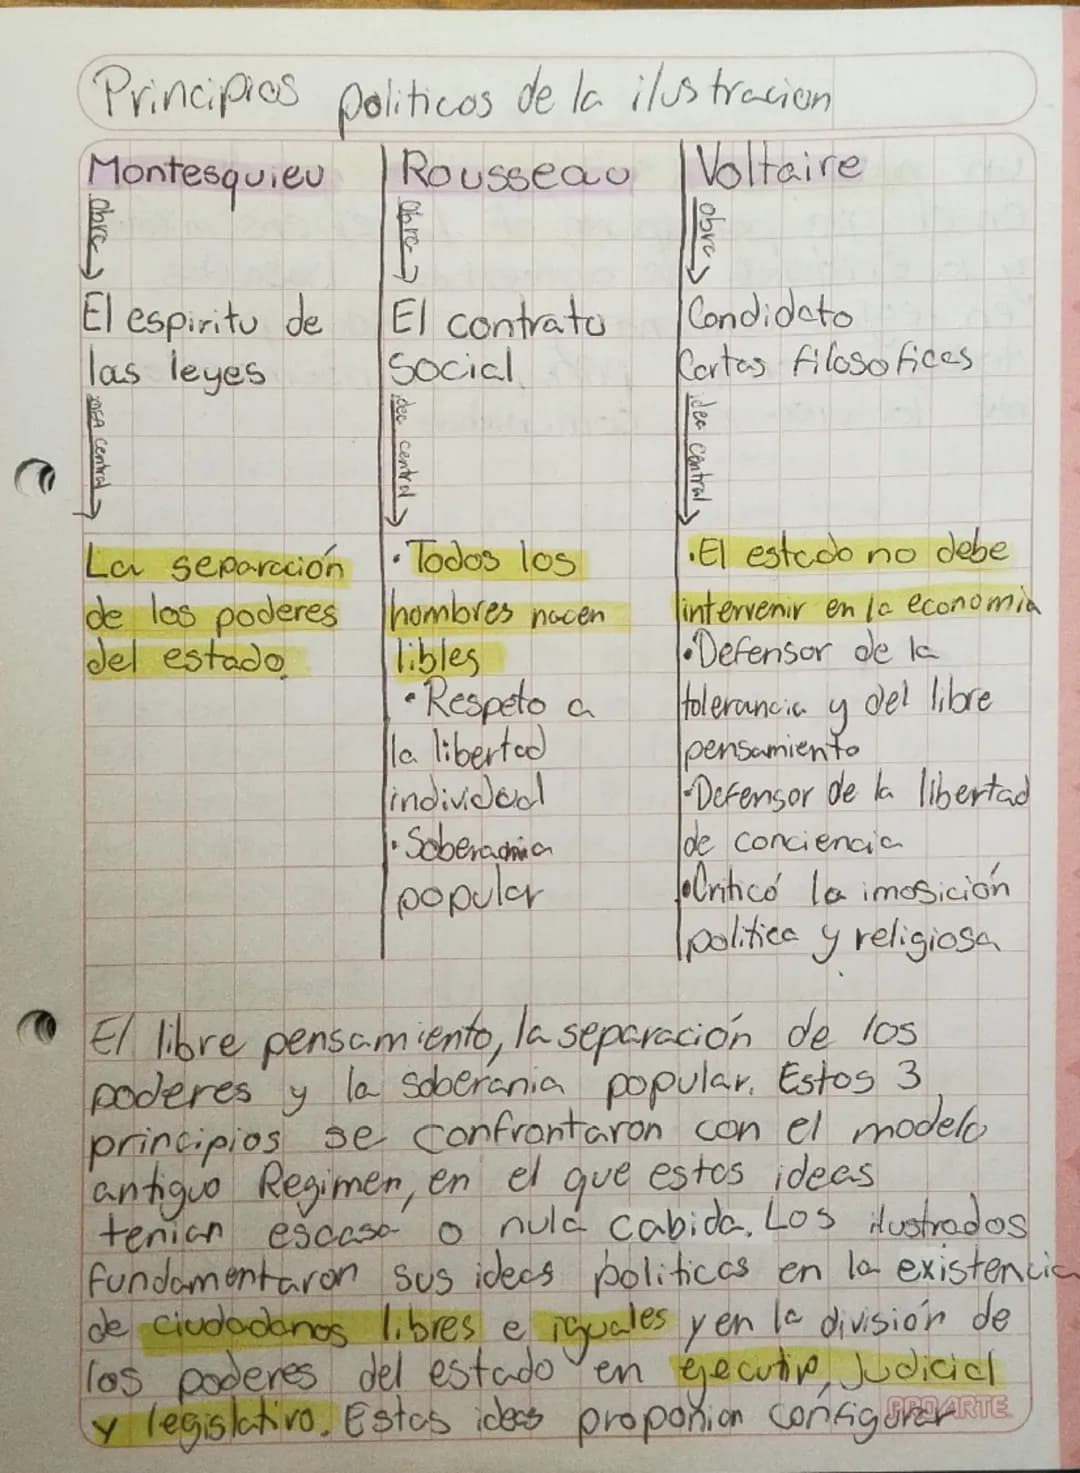 Principios politicos de la ilustracion
Montesquieu
obra
El espiritu de
las leyes
IDEA central
La separación
de los poderes
del estado.
Rousseau
obra
El contrato
social
idea central
• Todos los
hombres nacen
libles
• Respeto a
la libertad
individual
• Soberania
popular
Voltaire
obra
Condidato
Cartas filosoficas
idea central
• El estado no debe
intervenir en la economia
• Defensor de la
tolerancia y del libre
pensamiento
• Defensor de la libertad
de conciencia
• Criticó la imosición
politica y religiosa
El libre pensamiento, la separación de los
poderes y la soberania popular. Estos 3
principios se confrontaron con el modelo
antiguo Regimen, en el que estas ideas
tenian escasa o nula cabida. Los ilustrados
fundamentaron sus ideas politicas en la existencia
de ciudadanos libres e iguales y en la división de
los poderes del estado en ejecutivo, Judicial
y legislativo. Estas ideas proponian configurar
PROARTE